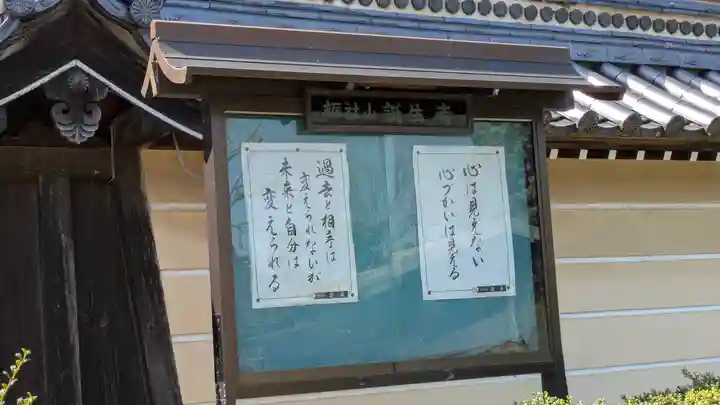 栃社山誕生寺
心は見えない
心づかいは見える
過去と相手は
変えられないが
未来と自分は
変えられる